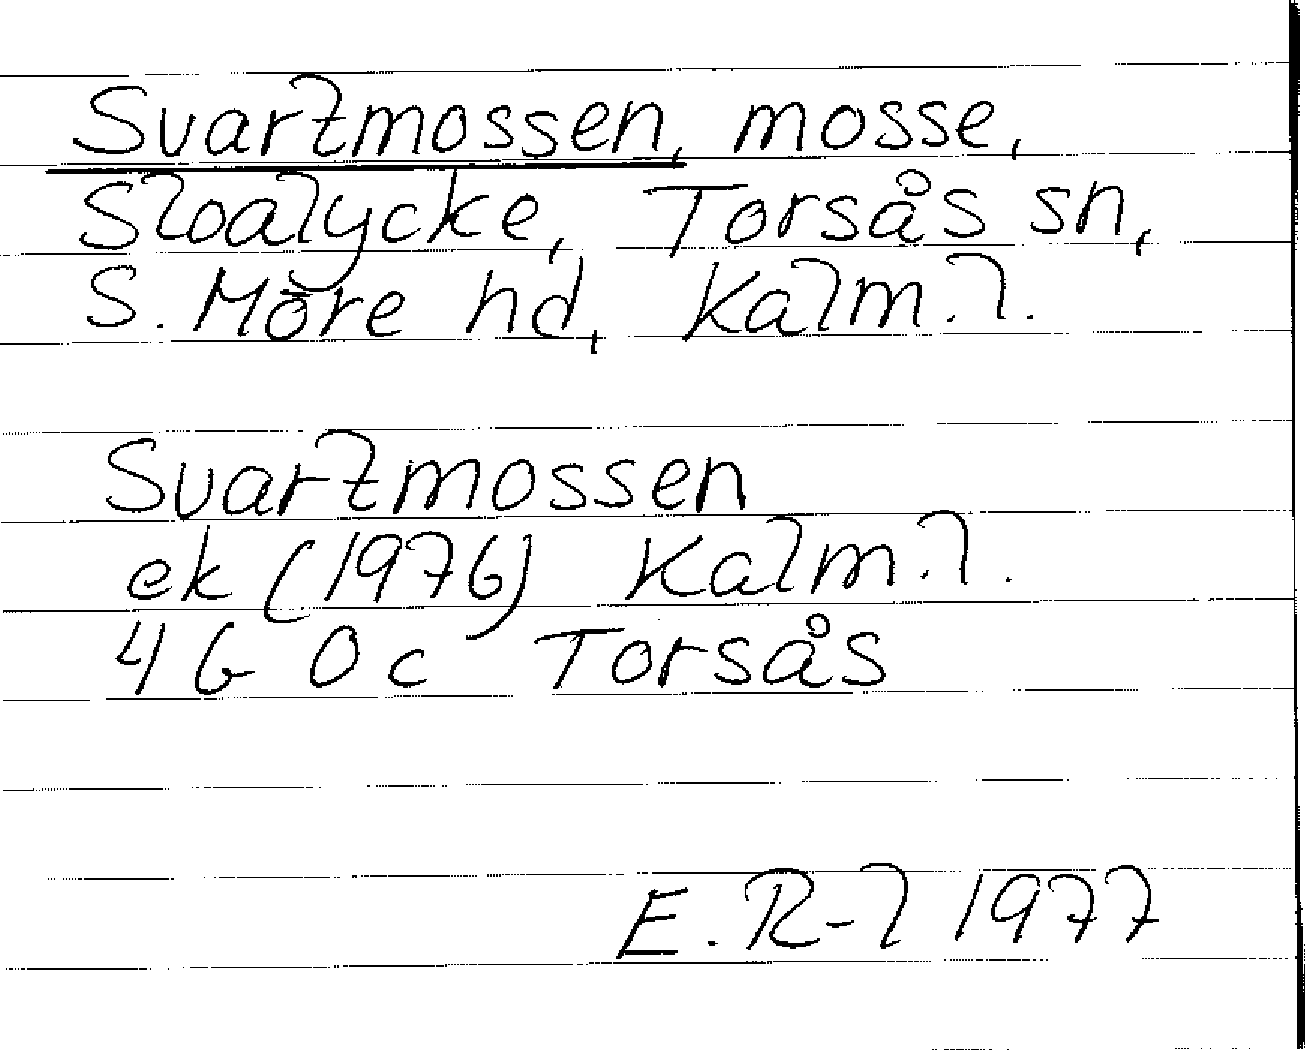 Svartmossen, mosse,
Sloalycke, Torsås sn,
S. Möre hd, Kalm. l.
Svartmossen
ek (1976) Kalm. l.
4G 0c Torsås
E. R-l 1977